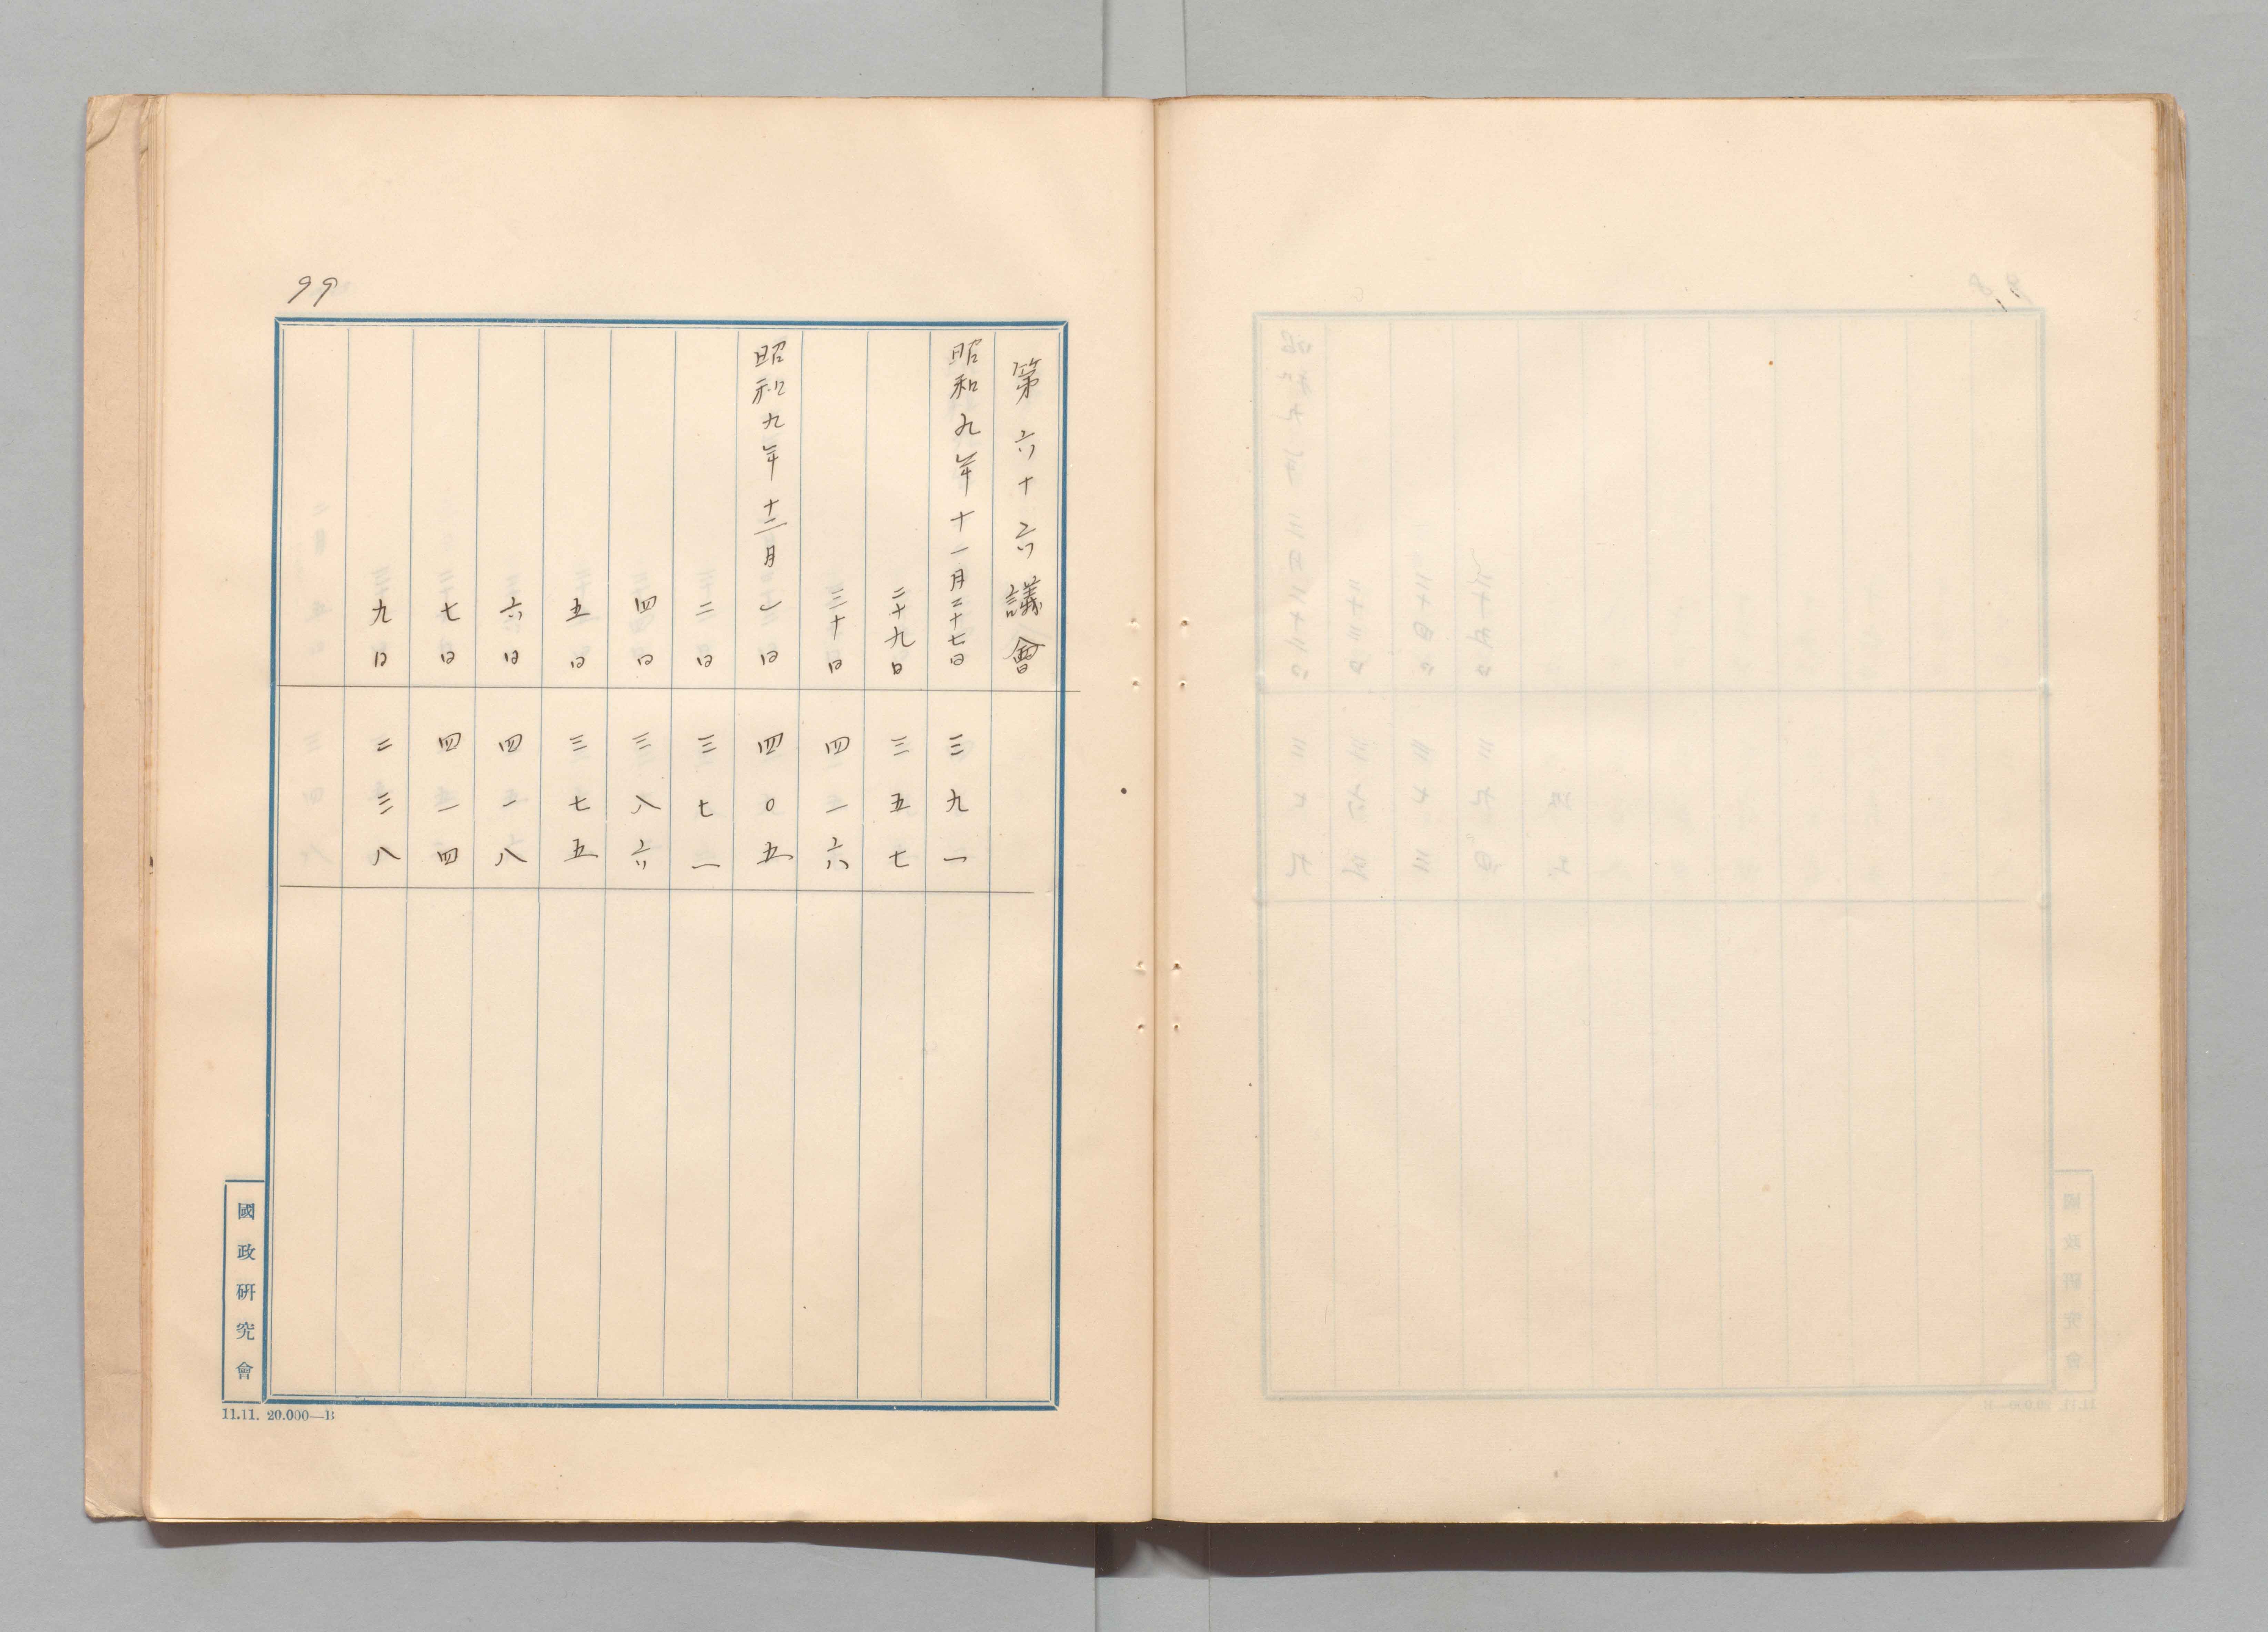 99
第六十六議會
昭和九年十一月二十七日 三九一
二十九日 三五七
三十日 四一六
昭和九年十二月一日 四〇五
二日 三七一
四日 三八六
五日 三七五
六日 四一八
七日 四一四
九日 二三八
國政研究會
11.11. 20.000—B